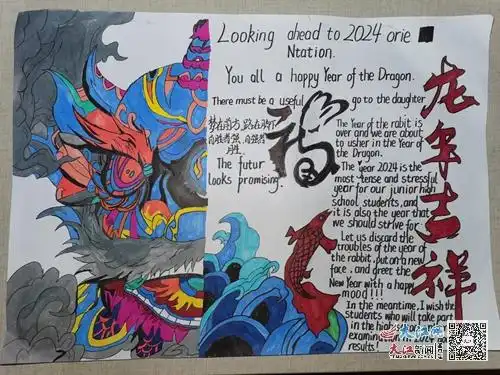 Looking ahead to 2024 orie
Ntation.
You all a happy Year of the Dragon.
There must be a useful go to the daughter
梦在前方,路在脚下
自胜者强,自强者
胜
福
The futur
looks promising.
The Year of the rabit is
over and we are about
to usher in the Year of
the Dragon.
The Year 2024 is the
most tense and stressful
year for our junior high
school students, and
it is also the year that
we should strive for
Let us discard the
troubles of the year of
the rabbit, put on a new
face, and greet the
New Year with a happy
mood!!!
In the meantime, I wish the
students who will take part
in the high school
examination in 2024 good
results!
龙年吉祥
大江网
大江新闻